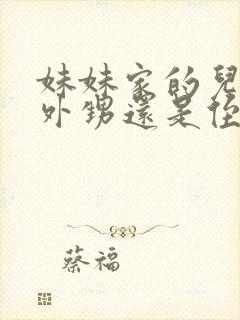 妹妹家的兒
外甥還是侄
蔡福